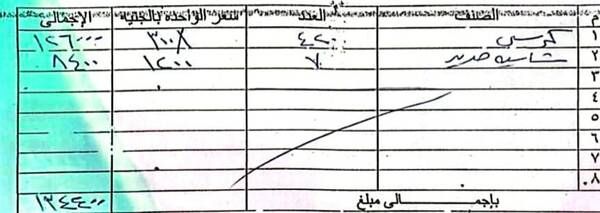 م الصنف العدد سعر الواحدة بالجنيه الإجمالى
١ كرسي ٤٢٠ ٣٠٠ ١٢٦٠٠٠
٢ شاسيه حديد ٧ ١٢٠٠ ٨٤٠٠
٣
٤
٥
٦
٧
٨
بإجمـــالى مبلغ ١٣٤٤٠٠